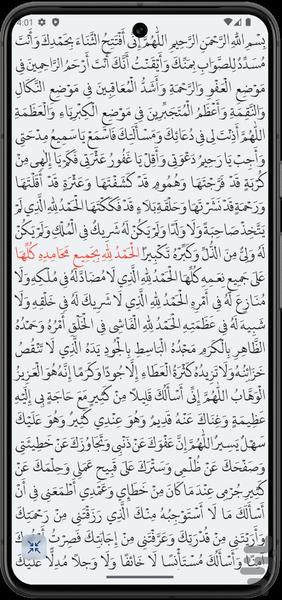 4:01
بِسْمِ اللهِ الرَّحْمنِ الرَّحيمِ اَللّهُمَّ اِنّى اَفْتَتِحُ الثَّناءَ بِحَمْدِكَ وَاَنْتَ
مُسَدِّدٌ لِلصَّوابِ بِمَنِّكَ وَاَيْقَنْتُ اَنَّكَ اَنْتَ اَرْحَمُ الرّاحِمينَ فى
مَوْضِعِ الْعَفْوِ وَالرَّحْمَةِ وَاَشَدُّ الْمُعاقِبينَ فى مَوْضِعِ النَّكالِ
وَالنَّقِمَةِ وَاَعْظَمُ الْمُتَجَبِّرينَ فى مَوْضِعِ الْكِبْرِياءِ وَالْعَظَمَةِ
اَللّهُمَّ اَذِنْتَ لى فى دُعائِكَ وَمَسْأَلَتِكَ فَاسْمَعْ يا سَميعُ مِدْحَتى
وَاَجِبْ يا رَحيمُ دَعْوَتى وَاَقِلْ يا غَفُورُ عَثْرَتى فَكَمْ يا اِلهى مِنْ
كُرْبَةٍ قَدْ فَرَّجْتَها وَهُمُومٍ قَدْ كَشَفْتَها وَعَثْرَةٍ قَدْ اَقَلْتَها
وَرَحْمَةٍ قَدْ نَشَرْتَها وَحَلْقَةِ بَلاءٍ قَدْ فَكَكْتَها اَلْحَمْدُ للهِ الَّذى لَمْ
يَتَّخِذْ صاحِبَةً وَلا وَلَدًا وَلَمْ يَكُنْ لَهُ شَريكٌ فى الْمُلْكِ وَلَمْ يَكُنْ
لَهُ وَلِىٌّ مِنَ الذُّلِّ وَكَبِّرْهُ تَكْبيرًا اَلْحَمْدُ للهِ بِجَميعِ مَحامِدِهِ كُلِّها
عَلى جَميعِ نِعَمِهِ كُلِّها اَلْحَمْدُ للهِ الَّذى لا مُضادَّ لَهُ فى مُلْكِهِ وَلا
مُنازِعَ لَهُ فى اَمْرِهِ اَلْحَمْدُ للهِ الَّذى لا شَريكَ لَهُ فى خَلْقِهِ وَلا
شَبيهَ لَهُ فى عَظَمَتِهِ اَلْحَمْدُ للهِ الْفاشى فى الْخَلْقِ اَمْرُهُ وَحَمْدُهُ
الظّاهِرِ بِالْكَرَمِ مَجْدُهُ الْباسِطِ بِالْجُودِ يَدَهُ الَّذى لا تَنْقُصُ
خَزائِنُهُ وَلا تَزيدُهُ كَثْرَةُ الْعَطاءِ اِلاّ جُودًا وَكَرَمًا اِنَّهُ هُوَ الْعَزيزُ
الْوَهّابُ اَللّهُمَّ اِنّى اَسْأَلُكَ قَليلاً مِنْ كَثيرٍ مَعَ حاجَةٍ بى اِلَيْهِ
عَظيمَةٍ وَغِناكَ عَنْهُ قَديمٌ وَهُوَ عِنْدى كَثيرٌ وَهُوَ عَلَيْكَ
سَهْلٌ يَسيرٌ اَللّهُمَّ اِنَّ عَفْوَكَ عَنْ ذَنْبى وَتَجاوُزَكَ عَنْ خَطيئَتى
وَصَفْحَكَ عَنْ ظُلْمى وَسَتْرَكَ عَلى قَبيحِ عَمَلى وَحِلْمَكَ عَنْ
كَثيرِ جُرْمى عِنْدَ ما كانَ مِنْ خَطائى وَعَمْدى اَطْمَعَنى فى اَنْ
اَسْأَلَكَ ما لا اَسْتَوْجِبُهُ مِنْكَ الَّذى رَزَقْتَنى مِنْ رَحْمَتِكَ
وَاَرَيْتَنى مِنْ قُدْرَتِكَ وَعَرَّفْتَنى مِنْ اِجابَتِكَ فَصِرْتُ اَدْعُوكَ
آمِنًا وَاَسْأَلُكَ مُسْتَأْنِسًا لا خائِفًا وَلا وَجِلاً مُدِلاًّ عَلَيْكَ